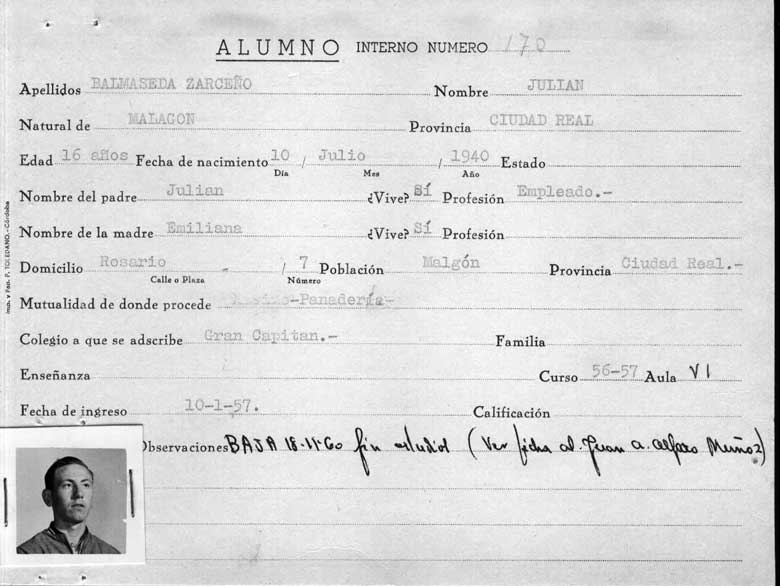 ALUMNO INTERNO NUMERO 170
Apellidos BALMASEDA ZARCEÑO Nombre JULIAN
Natural de MALAGON Provincia CIUDAD REAL
Edad 16 años Fecha de nacimiento 10 / Julio / 1940 Estado
Día Mes Año
Nombre del padre Julian ¿Vive? Sí Profesión Empleado.-
Nombre de la madre Emiliana ¿Vive? Sí Profesión
Domicilio Rosario - / 7 Población Malgón Provincia Ciudad Real.-
Calle o Plaza Número
Mutualidad de donde procede -Panadería-
Colegio a que se adscribe Gran Capitan.- Familia
Enseñanza Curso 56-57 Aula VI
Fecha de ingreso 10-1-57. Calificación
Observaciones BAJA 18-11-60 fin estudios (Ver ficha al. Juan A. Alfaro Muñoz)
Imp. y Pap. P. TOLEDANO.-Córdoba